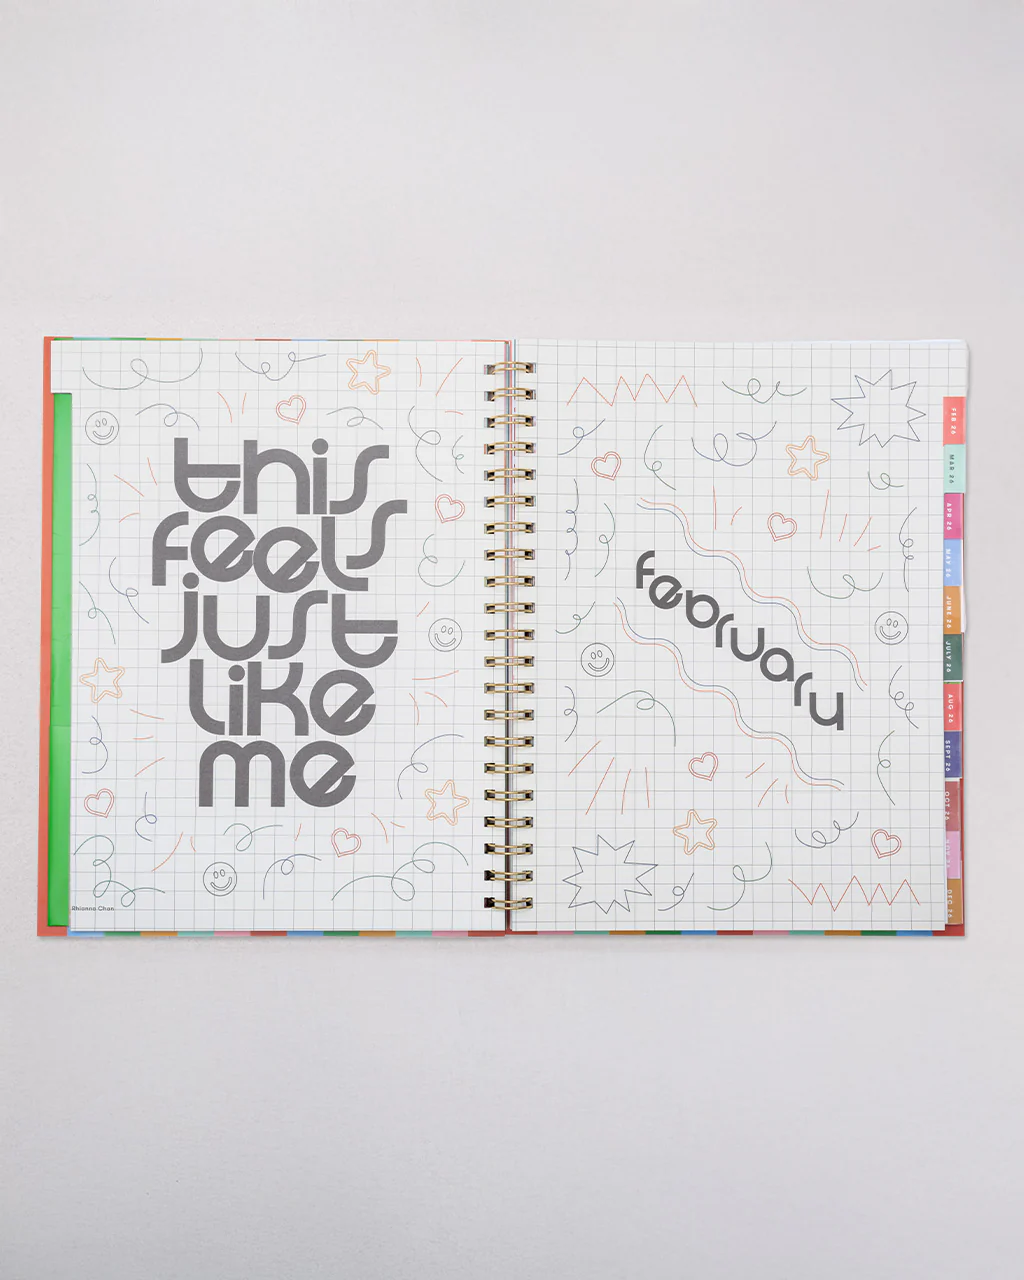 this
feels
just
like
me
Rhianna Chan
february
FEB 26
MAR 26
APR 26
MAY 26
JUNE 26
JULY 26
AUG 26
SEPT 26
DEC 26